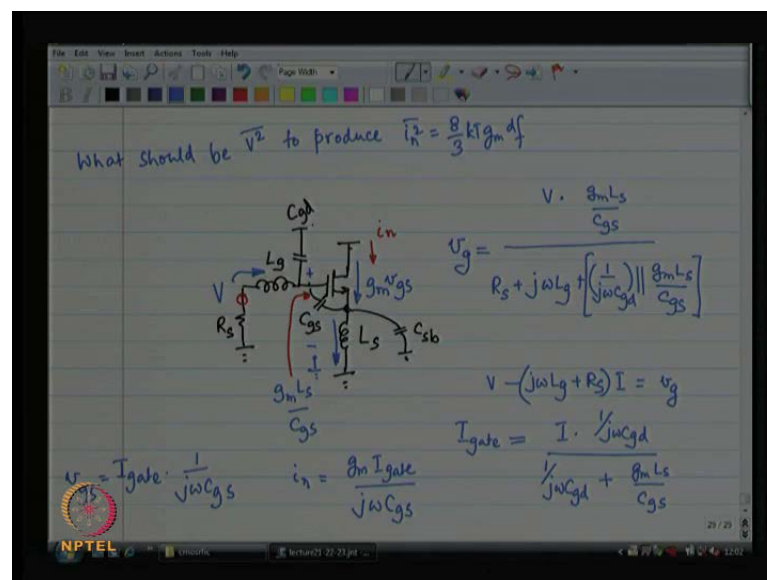 File Edit View Insert Actions Tools Help
Page Width
What should be v̅² to produce i̅ₙ² = 8/3 kTgₘ df
Cgd
Lg
+
V
Rs
Cgs
-
I
gmLs/Cgs
in
gmvgs
Ls
Csb
vg = V · (gmLs/Cgs) / (Rs + jωLg + [(1/jωCgd) || gmLs/Cgs])
V - (jωLg + Rs) I = vg
Igate = I · 1/jωCgd / (1/jωCgd + gmLs/Cgs)
vgs = Igate · 1/jωCgs
in = gm Igate / jωCgs
29 / 29
NPTEL
cmosrfic
lecture21-22-23.jnt - ...
12:02